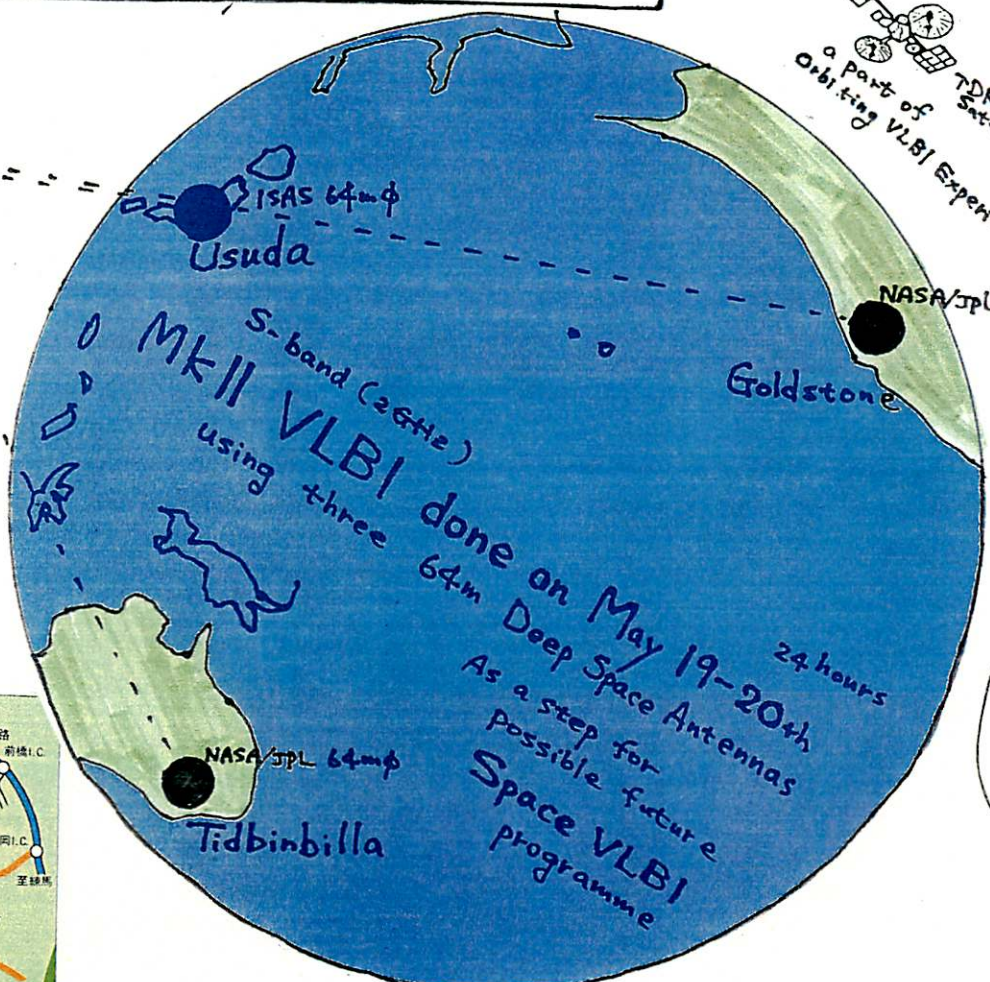 a part of
Orbiting VLBI
ISAS 64mφ
Usuda
NASA/JPL
Goldstone
S-band (2GHz)
MkII VLBI done on May 19-20th
24 hours
using three 64m Deep Space Antennas
As a step for
possible future
Space VLBI
programme
NASA/JPL 64mφ
Tidbinbilla
路
前橋I.C.
岡I.C.
至練馬